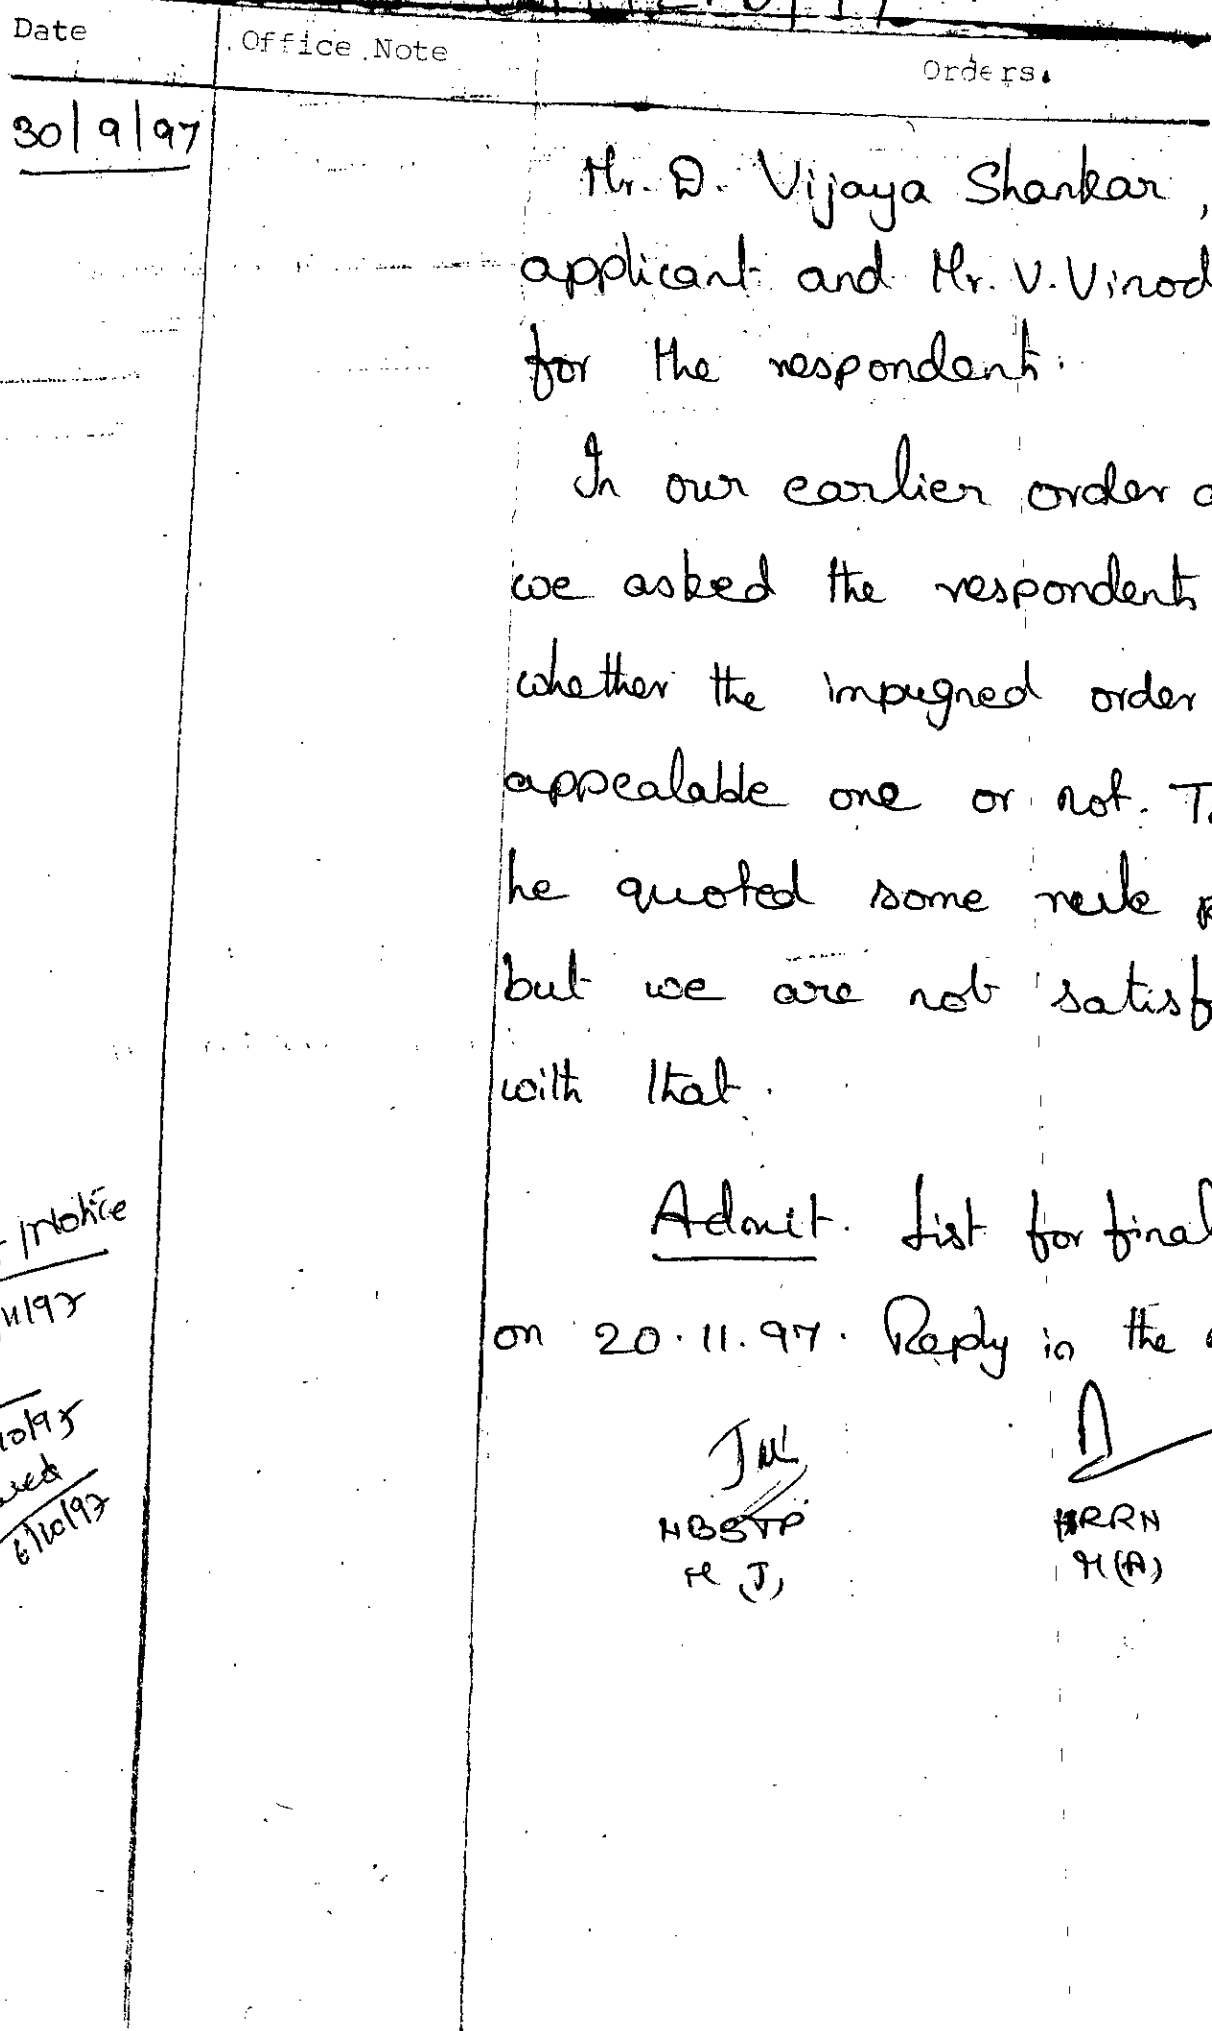 Date
Office Note
Orders.
30/9/97
Mr. D. Vijaya Shankar,
applicant and Mr. V. Vinod
for the respondent.
In our earlier order
we asked the respondents
whether the impugned order
appealable one or not.
he quoted some
but we are not satisf
with that.
Admit. List for final
on 20.11.97. Reply in the
HBSJP
M (J)
HRRN
M (A)
Notice
11/97
10/97
6/10/97